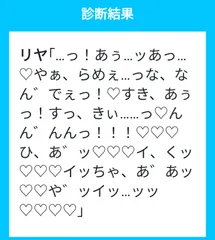 診断結果
リヤ「…っ！あぅ…ッあっ…
♡やぁ、らめぇ…っな、な
ん゛でぇっ！♡すき、あぅ
っ！すっ、きぃ……っ♡んん
ん゛んんっ！！！♡♡♡
ひ、あ゛ッ♡♡♡イ、くッ
♡♡♡イッちゃ、あ゛あッ
♡♡や゛ッイッ…ッッ
♡♡♡♡」